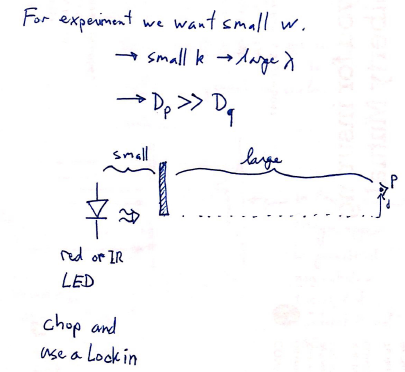 For experiment we want small w.
→ small k → large λ
→ Dp >> Dq
small
large
P
d
red or IR
LED
chop and
use a Lockin